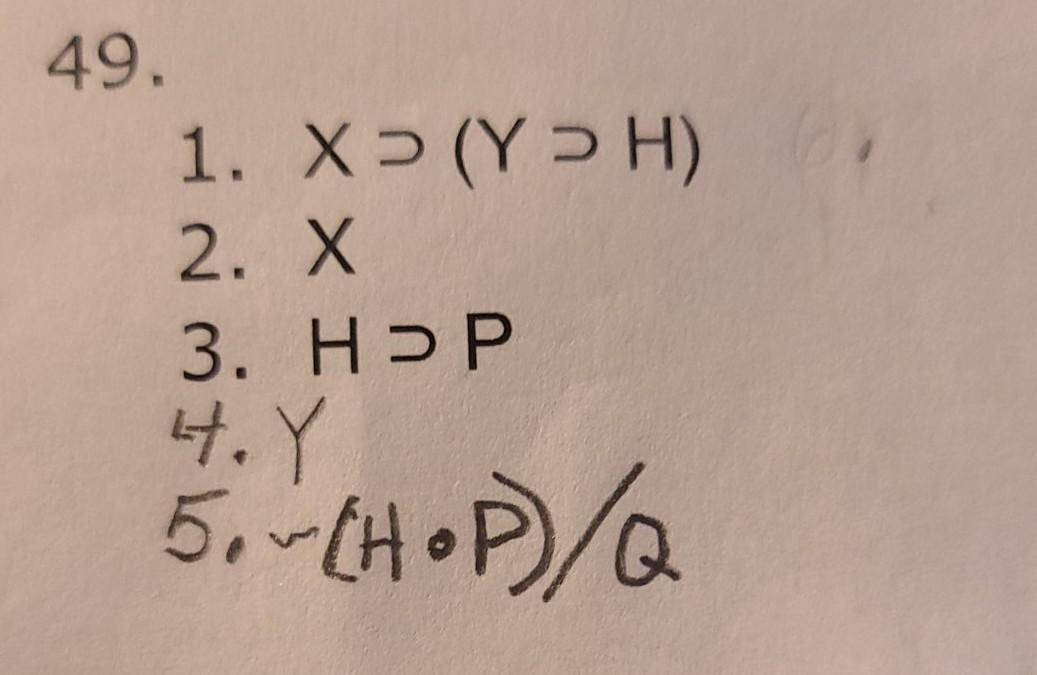 49.
1. X ⊃ (Y ⊃ H)
2. X
3. H ⊃ P
4. Y
5. ~(H • P) / Q